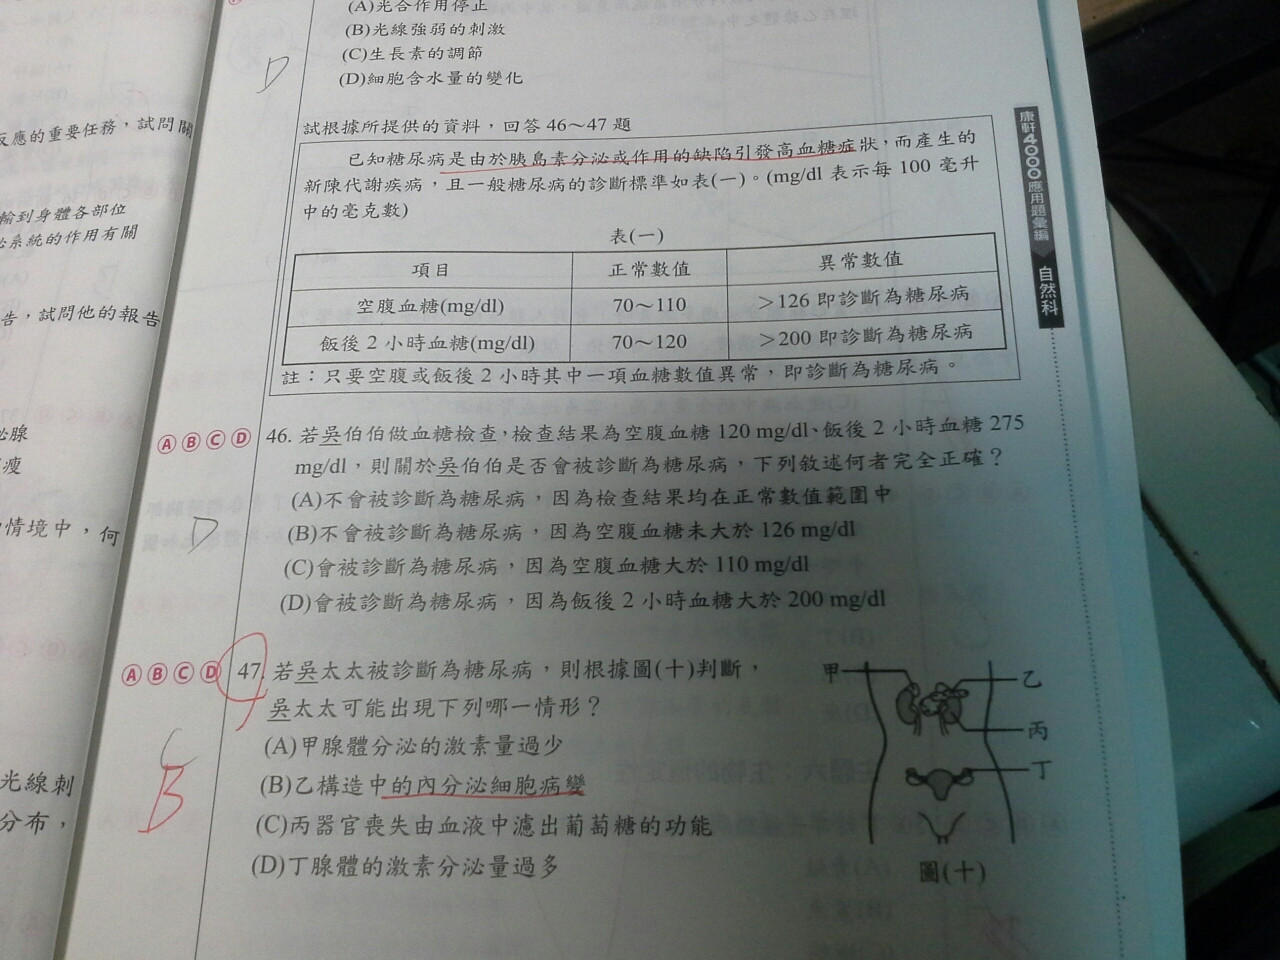 (A)光合作用停止
(B)光線強弱的刺激
(C)生長素的調節
(D)細胞含水量的變化
D
試根據所提供的資料，回答46～47題
已知糖尿病是由於胰島素分泌或作用的缺陷引發高血糖症狀，而產生的
新陳代謝疾病，且一般糖尿病的診斷標準如表(一)。(mg/dl 表示每 100 毫升
中的毫克數)
表(一)
項目 正常數值 異常數值
空腹血糖(mg/dl) 70～110 ＞126 即診斷為糖尿病
飯後 2 小時血糖(mg/dl) 70～120 ＞200 即診斷為糖尿病
註：只要空腹或飯後 2 小時其中一項血糖數值異常，即診斷為糖尿病。
Ⓐ Ⓑ Ⓒ Ⓓ 46. 若吳伯伯做血糖檢查，檢查結果為空腹血糖 120 mg/dl、飯後 2 小時血糖 275
mg/dl，則關於吳伯伯是否會被診斷為糖尿病，下列敘述何者完全正確？
(A)不會被診斷為糖尿病，因為檢查結果均在正常數值範圍中
(B)不會被診斷為糖尿病，因為空腹血糖未大於 126 mg/dl
(C)會被診斷為糖尿病，因為空腹血糖大於 110 mg/dl
(D)會被診斷為糖尿病，因為飯後 2 小時血糖大於 200 mg/dl
D
Ⓐ Ⓑ Ⓒ Ⓓ 47. 若吳太太被診斷為糖尿病，則根據圖(十)判斷，
吳太太可能出現下列哪一情形？
(A)甲腺體分泌的激素量過少
(B)乙構造中的內分泌細胞病變
(C)丙器官喪失由血液中濾出葡萄糖的功能
(D)丁腺體的激素分泌量過多
C
B
甲
乙
丙
丁
圖(十)
康軒4000應用題彙編
自然科
反應的重要任務，試問關
輸到身體各部位
系統的作用有關
告，試問他的報告
腺
瘦
情境中，何
光線刺
分布，